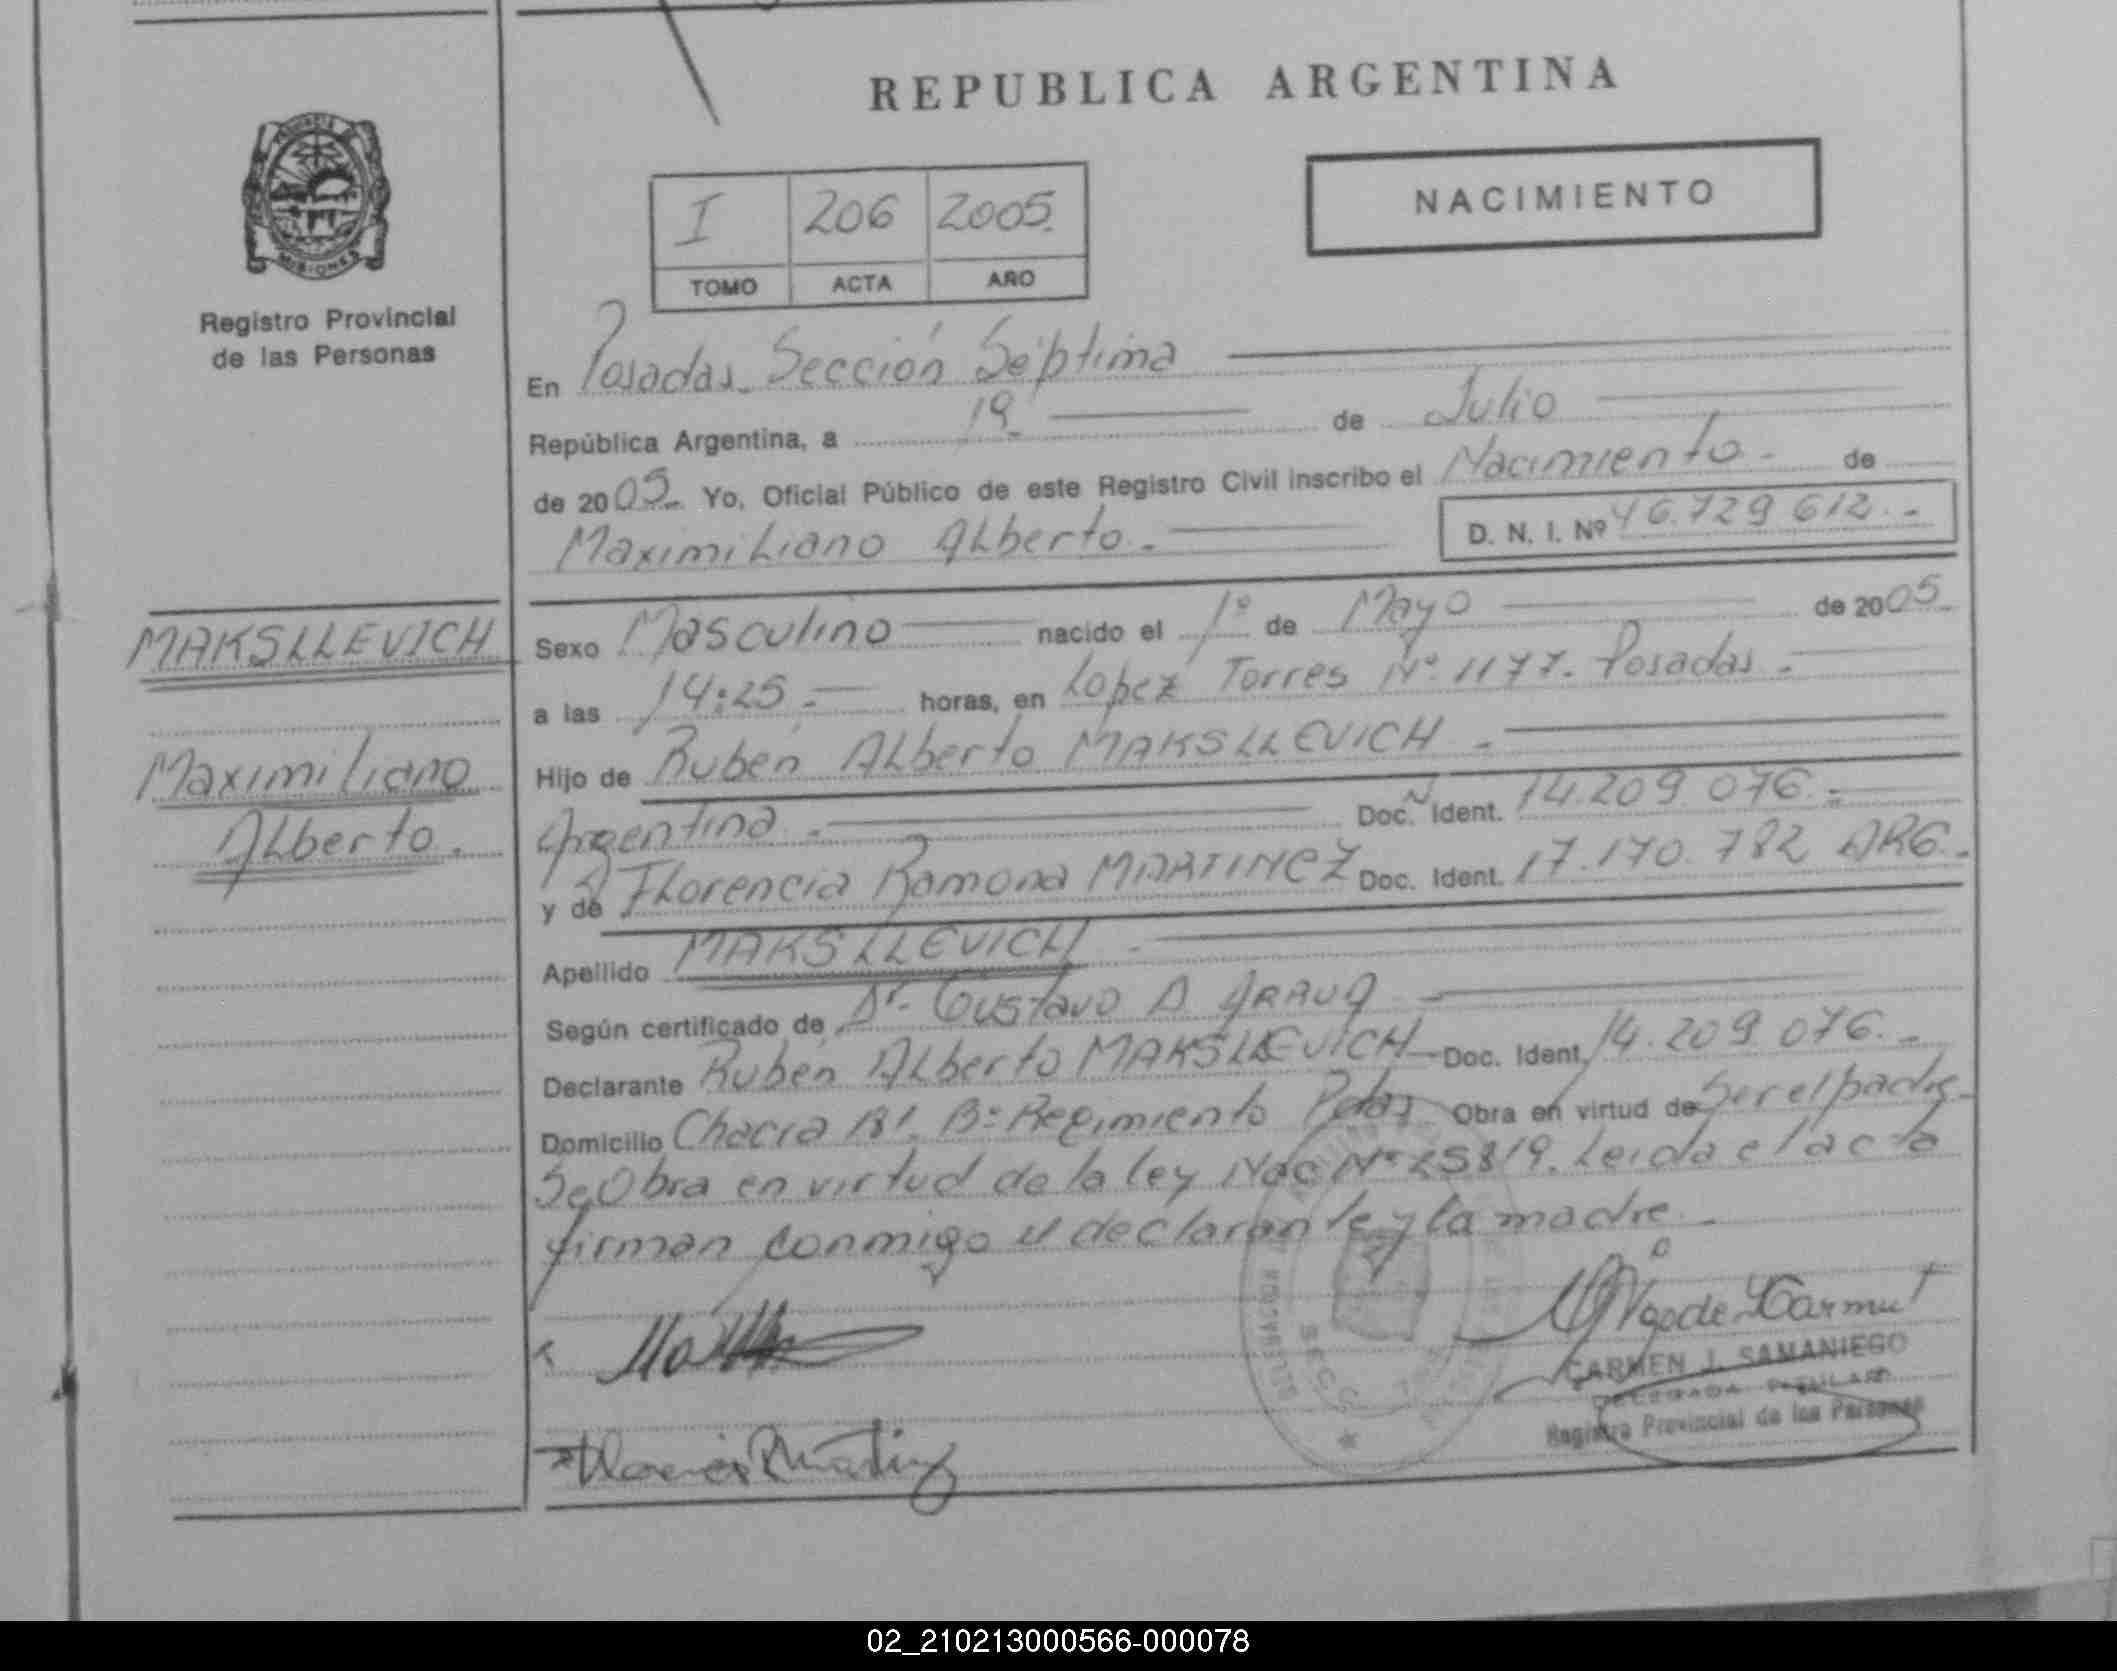 REPUBLICA ARGENTINA
PROVINCIA DE
MISIONES
Registro Provincial
de las Personas
I 206 2005.
TOMO ACTA AÑO
NACIMIENTO
En Posadas. Sección Séptima
República Argentina, a 19. de Julio
de 2005. Yo, Oficial Público de este Registro Civil inscribo el Nacimiento. de
Maximiliano Alberto.- D. N. I. Nº 46.729 612.-
MAKSLLEVICH
Maximiliano
Alberto.
Sexo Masculino nacido el 1º de Mayo de 2005.
a las 14:25.- horas, en Lopez Torres Nº. 1177. Posadas.-
Hijo de Rubén Alberto MAKSLLEVICH.-
Argentina.- Doc. Ident. 14.209.076.-
y de Florencia Ramona MARTINEZ Doc. Ident. 17.170.782 ARG.-
Apellido MAKSLLEVICH.-
Según certificado de Dr. Gustavo D
Declarante Rubén Alberto MAKSLLEVICH Doc. Ident. 14.209 076.-
Domicilio Chacra 181. Bº Regimiento Pdas Obra en virtud de Ser el padre.
Se Obra en virtud de la ley Nac Nº 25819. Leida el acta
firman conmigo el declarante y la madre.-
CARMEN J. SAMANIEGO
DELEGADA TITULAR
Registro Provincial de las Personas
02_210213000566-000078